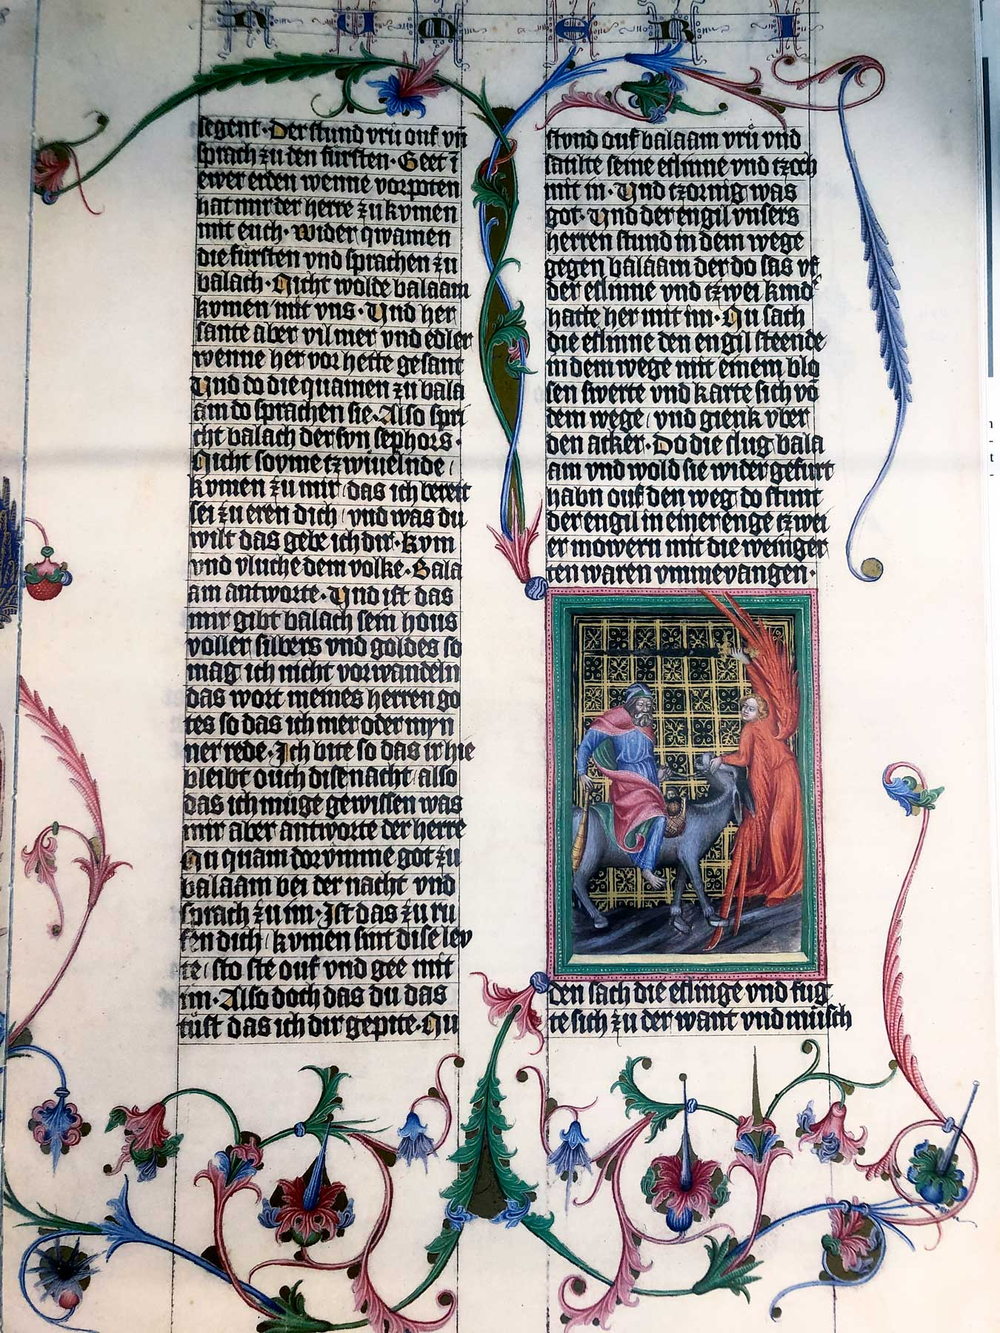 NUMERI
segent · Der stund vru ouf vn̄
sprach zu den fursten · Geet ī
ewer erden wenne vorpoten
hat mir der herre zu kvmen
mit euch · Wider qwamen
die fursten vnd sprachen zu
balach · Nicht wolde balaam
kvmen mit vns · Und her
sante aber vil mer vnd edler
wenne her vor hette gesant
Und do die quamen zu bala
am do sprachen sie · Also spri
cht balach der svn sephors ·
Nicht sovme tzwiuelnde /
kvmen zu mir / das ich bereit
sei zu eren dich / vnd was du
wilt das gebe ich dir · Kvm
vnd vluche dem volke · Bala
am antworte · Und ist das
mir gibt balach sein hous
voller silbers vnd goldes so
mag ich nicht vorwandeln
das wort meines herren go
tes so das ich mer oder myn
ner rede · Ich bite so das ir hie
bleibt ouch dise nacht / also
das ich muge gewissen was
mir aber antworte der herre
Nu quam dorvmme got zu
balaam bei der nacht vnd
sprach zu im · Ist das zu ru
fen dich / kvmen sint dise lev
te / sto ste ouf vnd gee mit
im · Also doch das du das
tust das ich dir gepite · Nu
stund ouf balaam vru vnd
satilte seine eslinne vnd tzoch
mit in · Und tzornig was
got · Und der engil vnsers
herren stund in dem wege
gegen balaam der do sas vf
der eslinne vnd tzwei kind
hatte her mit im · Nu sach
die eslinne den engil steende
in dem wege mit einem blo
sen swerte vnd karte sich vō
dem wege / vnd gienk vber
den acker · Do die slug bala
am vnd wold sie wider gefurt
habn ouf den weg do stunt
der engil in einer enge tzwei
er mowern mit die weinger
ten waren vmmevangen ·
den sach die eslinne vnd fug
te sich zu der want vnd musch